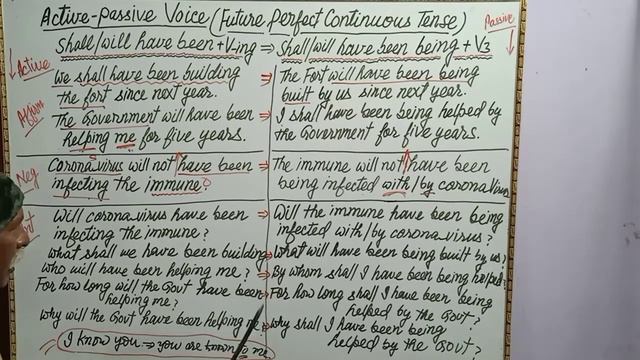 Active-Passive Voice (Future Perfect Continuous Tense)
Passive
Shall/will have been + V-ing ⇒ Shall/will have been being + V3
Active
We shall have been building ⇒ The Fort will have been being
the fort since next year. built by us since next year.
Affirm
The Government will have been ⇒ I shall have been being helped by
helping me for five years. the Government for five years.
Neg
Corona virus will not have been ⇒ The immune will not have been
infecting the immune? being infected with/by corona virus
Will corona virus have been ⇒ Will the immune have been being
infecting the immune? infected with/by corona virus?
What shall we have been building ⇒ What will have been being built by us?
Who will have been helping me? ⇒ By whom shall I have been being helped?
For how long will the Govt have been ⇒ For how long shall I have been being
helping me? helped by the Govt?
Why will the Govt have been helping me ⇒ Why shall I have been being
helped by the Govt?
I know you ⇒ you are known to me